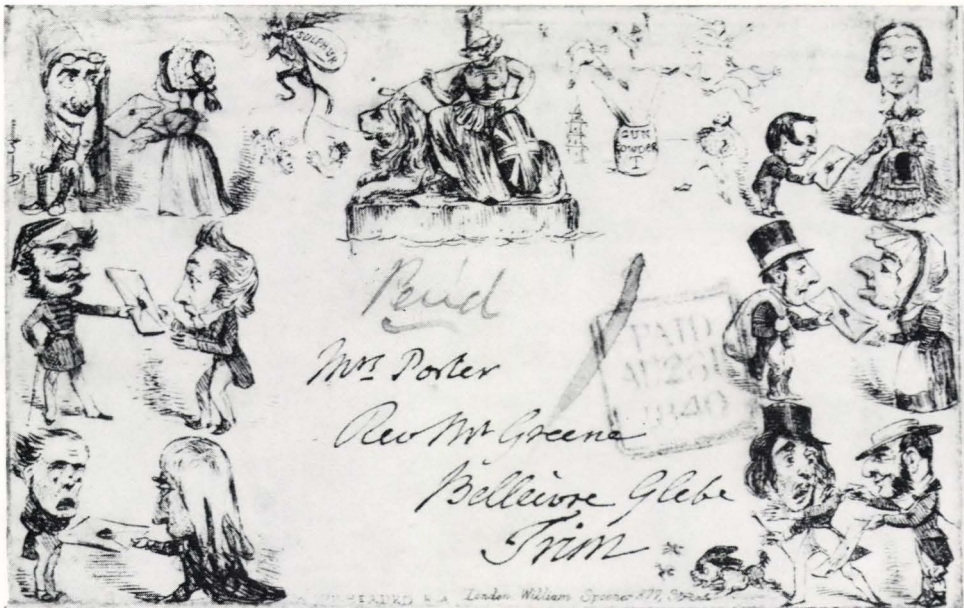 SULPHUR
GUN
POWDER
T
Paid
PAID
1840
Mrs Porter
Rev Mr Greene
Glebe
Trim
London William Spooner 377, Strand